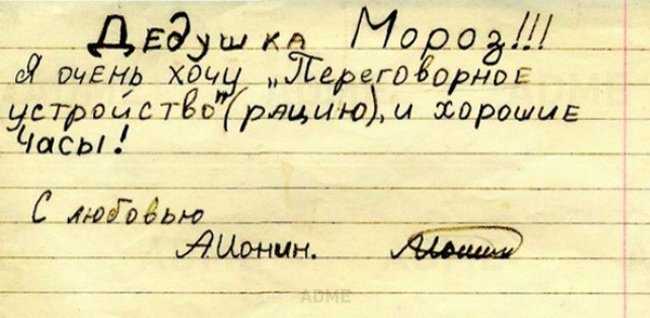 Дедушка Мороз!!!
Я очень хочу „Переговорное
устройство"(рацию), и хорошие
часы!
С любовью
А.Ионин.
ADME